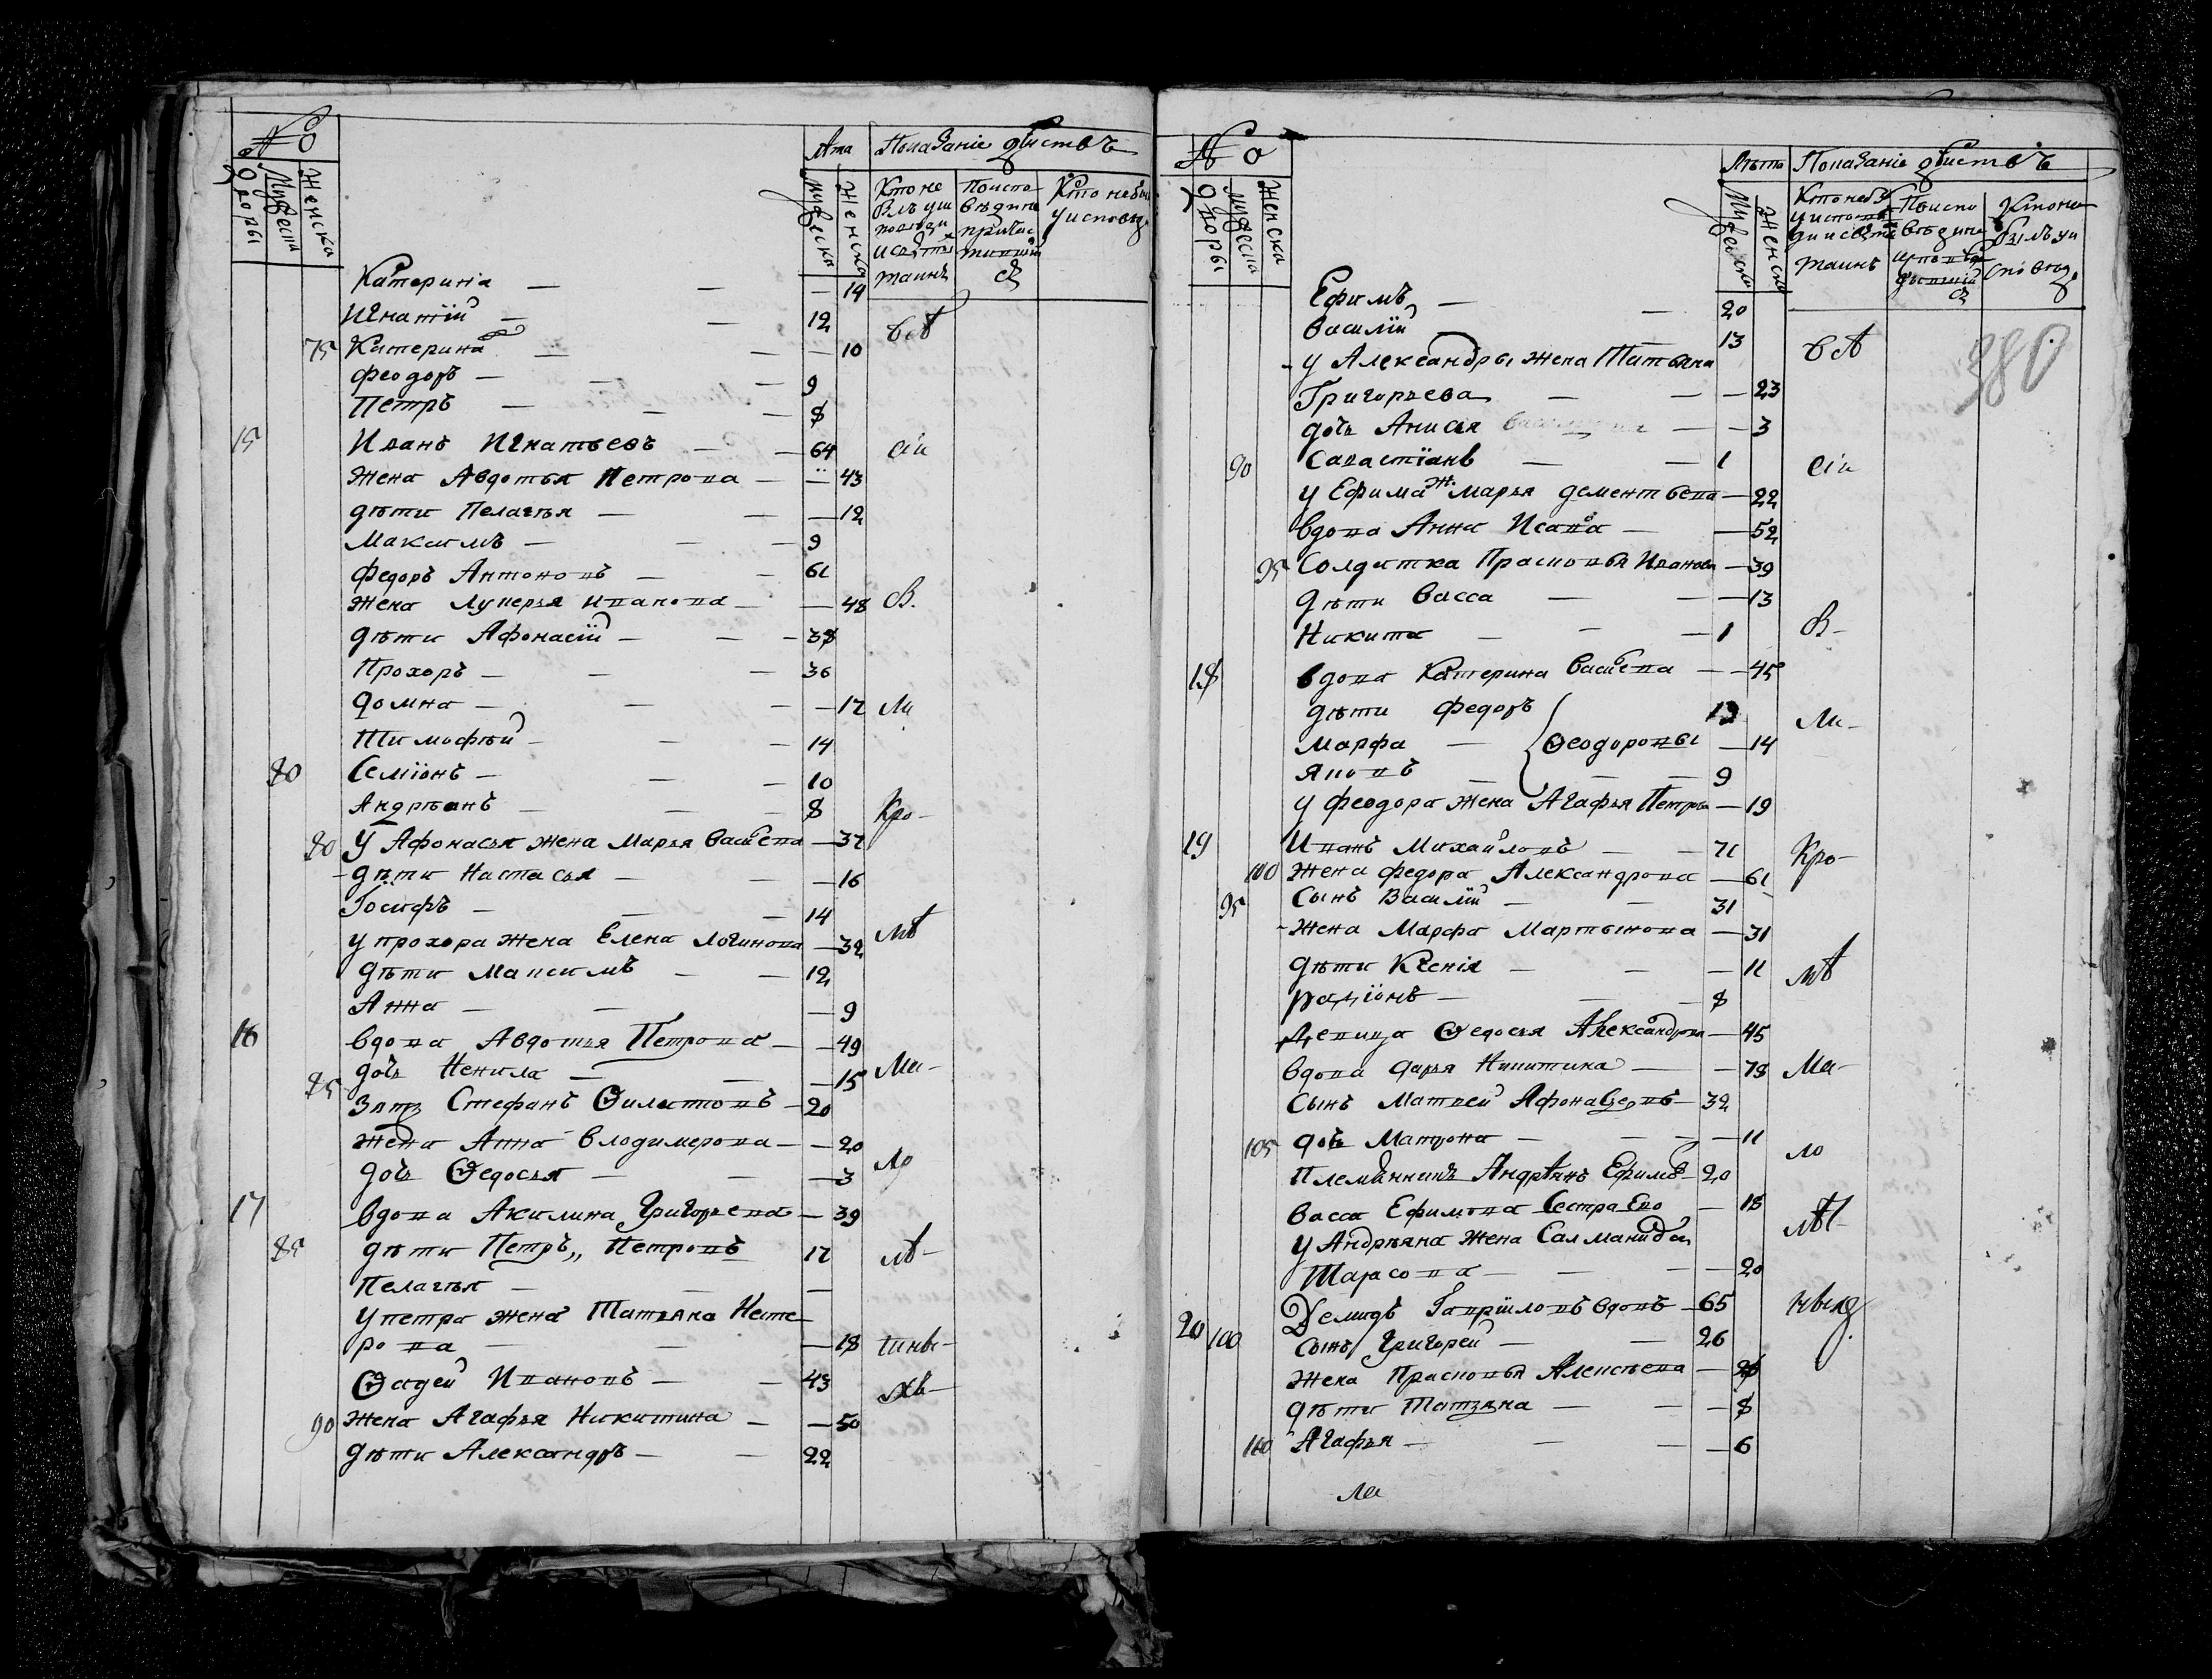 №
Лѣта Показаніе дѣйствъ
дворы
Мужеска
Женска
Мужеска
Женска
Кто не
былъ у исповѣди
и св. таинъ
По испо-
вѣди не
причас
тившійся
Кто не был
у исповѣд.
Катерина — — — 14
Игнатій — — 12
всѣ
75 Катерина — — — 10
Феодоръ — — — 9
Петръ — — — 8
15 Иванъ Игнатьевъ — — 64
сіи
жена Авдотья Петрова — — 43
дѣти Пелагѣя — — — 12
Максимъ — — — 9
Федоръ Антоновъ — — 61
жена Лукерья Иванова — — 48
В.
дѣти Афонасій — — — 38
Прохоръ — — — 36
Домна — — — — 12
Ли
Тимофѣй — — — 14
80 Семіонъ — — — 10
Андрѣянъ — — — 8
Кро-
80 У Афонасья жена Марья Васиева — 37
- дѣти Настасья — — — 16
Іосифъ — — — 14
у прохора жена Елена Логинова — 32
мѣ
дѣти Максимъ — — 12
Анна — — — 9
16 вдова Авдотья Петрова — — 49
85 дочь Ненила — — — 15
Ма-
Зять Стефанъ Филатовъ — 20
жена Анна Володимерова — — 20
дочь Федосья — — — 3
ло
17 вдова Акилина Григорьева — 39
85 дѣти Петръ,, Петровъ 17
лѣ-
Пелагѣя — — —
У петра жена Татьяна Несте-
рова — — — 18
Фадей Ивановъ — — 43
90 жена Агафья Никитина — — 50
дѣти Александръ — — 22
№
Лѣта Показаніе дѣйствъ
дворы
мужеска
женска
Мужеска
Женска
Кто не был
у исповѣ-
ди и свят.
таинъ
По испо
вѣди не
Кто не
былъ у и
сповѣд.
Ефимъ — — 20
василій — — 13
всѣ
380
- у Александры жена Татьяна
Григорьева — — — 23
дочь Анисья — — 3
90 Савастіянъ — — 1
сіи
у Ефима ж. Марья дементьева — 22
вдова Анна Исаева — — 52
95 Солдатка Прасковья Иванова — 39
дѣти Васса — — — 13
Никита — — — 1
В-
18 вдова Катерина Васиева — — 45
дѣти Федоръ 19
Ли-
Марфа — Феодоровы — 14
Яковъ — — — 9
у Феодора жена Агафья Петрова — 19
19 Иванъ Михайловъ — — 71
Кро-
100 жена Федора Александрова — 61
95 Сынъ Василій — — 31
- жена Марфа Мартынова — 31
дѣти Ксенія — — — 11
мѣ
Родіонъ — — — 8
Девица Федосья Александрова — 45
вдова дарья Никитина — — 78
Ма-
Сынъ Матвей Афонасьевъ — 32
105 дочь Матрона — — — 11
ло
Племянникъ Андрѣянъ Ефимовъ — 20
Васса Ефимова Сестра Ево — 18
лѣт-
У Андрѣяна жена Саломанида
Тарасова — — — 20
Демидъ Гаврііловъ вдовъ — 65
20 100 Сынъ Григорей — — 26
жена Прасковья Алексѣева — 26
дѣти Татьяна — — — 8
110 Агафья — — — 6
ла